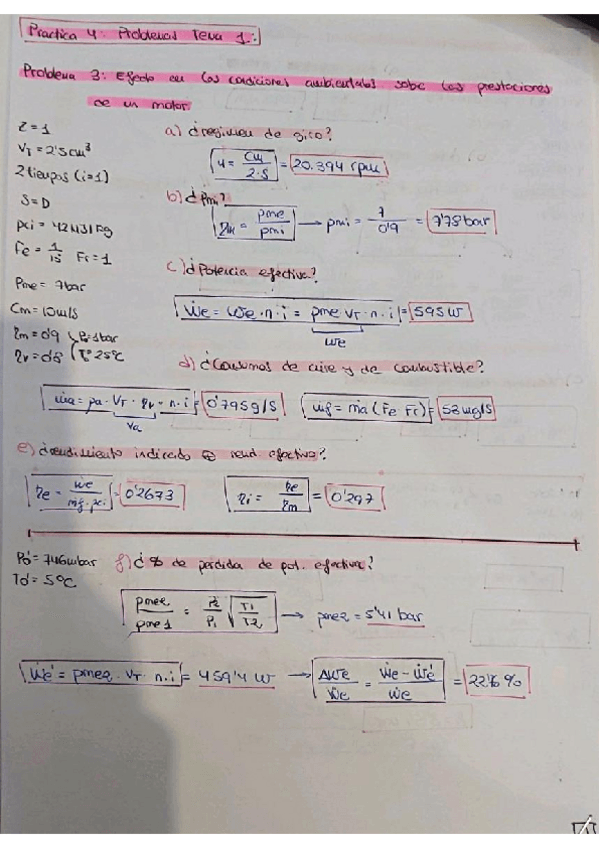 Practica 4: Problemas Tema 1.:
Problema 3: Efecto en las condiciones ambientales sobre las prestaciones
de un motor.
Z = 1
V_T = 2'5 cm³
2 tiempos (i=1)
S = D
pci = 42 MJ/kg
Fe = 1/15 Fr = 1
Pme = 7 bar
Cm = 10 m/s
ηm = 0'9 P0 = 1 bar
ηv = 0'8 T0 = 25ºC
a) ¿regimen de giro?
n = Cm / 2·S = 20.394 rpm
b) ¿Pmi?
ηm = pme / pmi → pmi = 7 / 0'9 = 7'78 bar
c) ¿Potencia efectiva?
Ẇe = We · n · i = pme V_T · n · i = 595 W
We
d) ¿Consumos de aire y de combustible?
ṁa = ρa · V_T · ηv · n · i = 0'795 g/s ṁf = ṁa (Fe Fr) = 53 mg/s
Va
e) ¿rendimiento indicado rend efectivo?
ηe = Ẇe / ṁf · pci = 0'2673 ηi = ηe / ηm = 0'297
P0' = 746 mbar f) ¿% de perdida de pot. efectiva?
T0' = 5ºC
pme2 / pme1 = P2 / P1 √(T1 / T2) → pme2 = 5'41 bar
Ẇe' = pme2 · V_T · n · i = 459'4 W → ΔẆe / Ẇe = (Ẇe - Ẇe') / Ẇe = 22'76 %